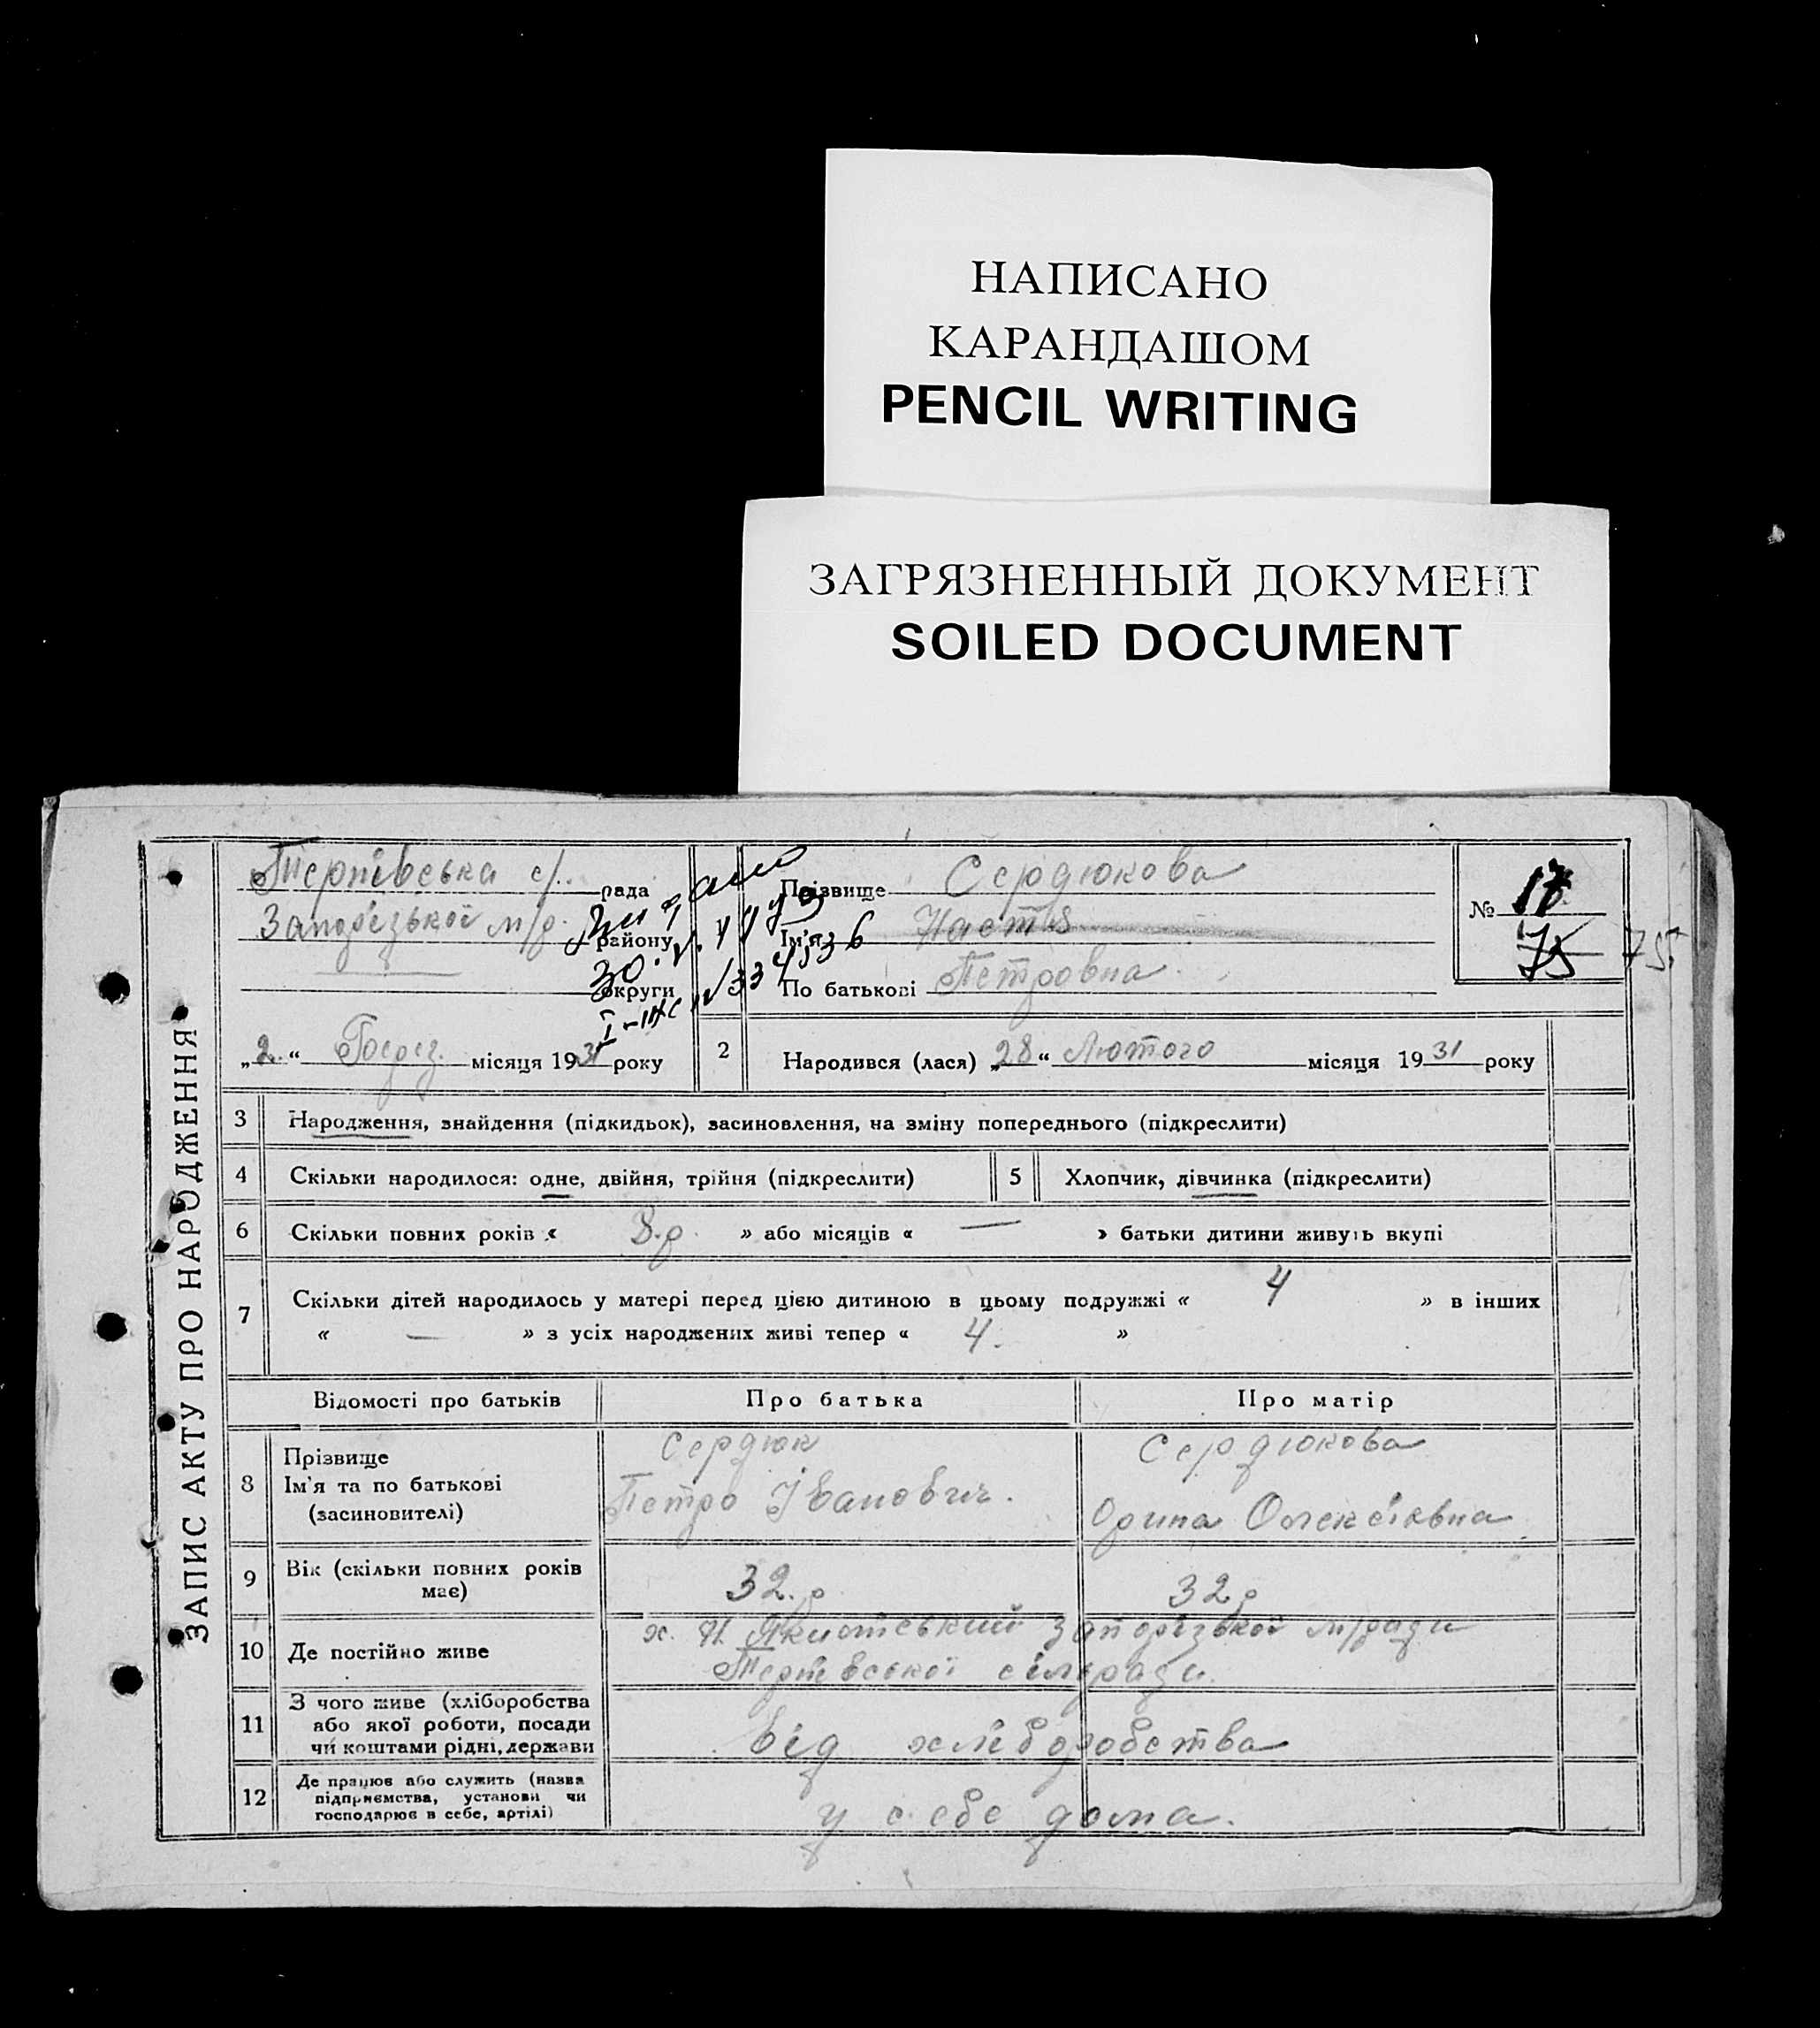 НАПИСАНО
КАРАНДАШОМ
PENCIL WRITING
ЗАГРЯЗНЕННЫЙ ДОКУМЕНТ
SOILED DOCUMENT
ЗАПИС АКТУ ПРО НАРОДЖЕННЯ
Терпівська с/. рада
Запорізької м/р. району
округи
„2.“ Берез. місяця 1931 року
Прізвище Сердюкова
Ім'я Настя
По батькові Петровна
№ 17
75
755
2 Народився (лася) „28“ Лютого місяця 1931 року
3 Народження, знайдення (підкидьок), засиновлення, на зміну попереднього (підкреслити)
4 Скільки народилося: одне, двійня, трійня (підкреслити) 5 Хлопчик, дівчинка (підкреслити)
6 Скільки повних років « 8.р. » або місяців « — » батьки дитини живуть вкупі
7 Скільки дітей народилось у матері перед цією дитиною в цьому подружжі « 4 » в інших
« — » з усіх народжених живі тепер « 4. »
Відомості про батьків Про батька Про матір
8 Прізвище Ім'я та по батькові (засновителі)
Сердюк
Петро Іванович.
Сердюкова
Орина Олексіівна
9 Вік (скільки повних років має) 32.р 32р
10 Де постійно живе х. Н. Запорізької м/ради
Терпівської сільради.
11 З чого живе (хліборобства
або якої роботи, посади
чи коштами рідні, держави
від хліборобства
12 Де працює або служить (назва
підприємства, установи чи
господарює в себе, артілі)
у себе дома.